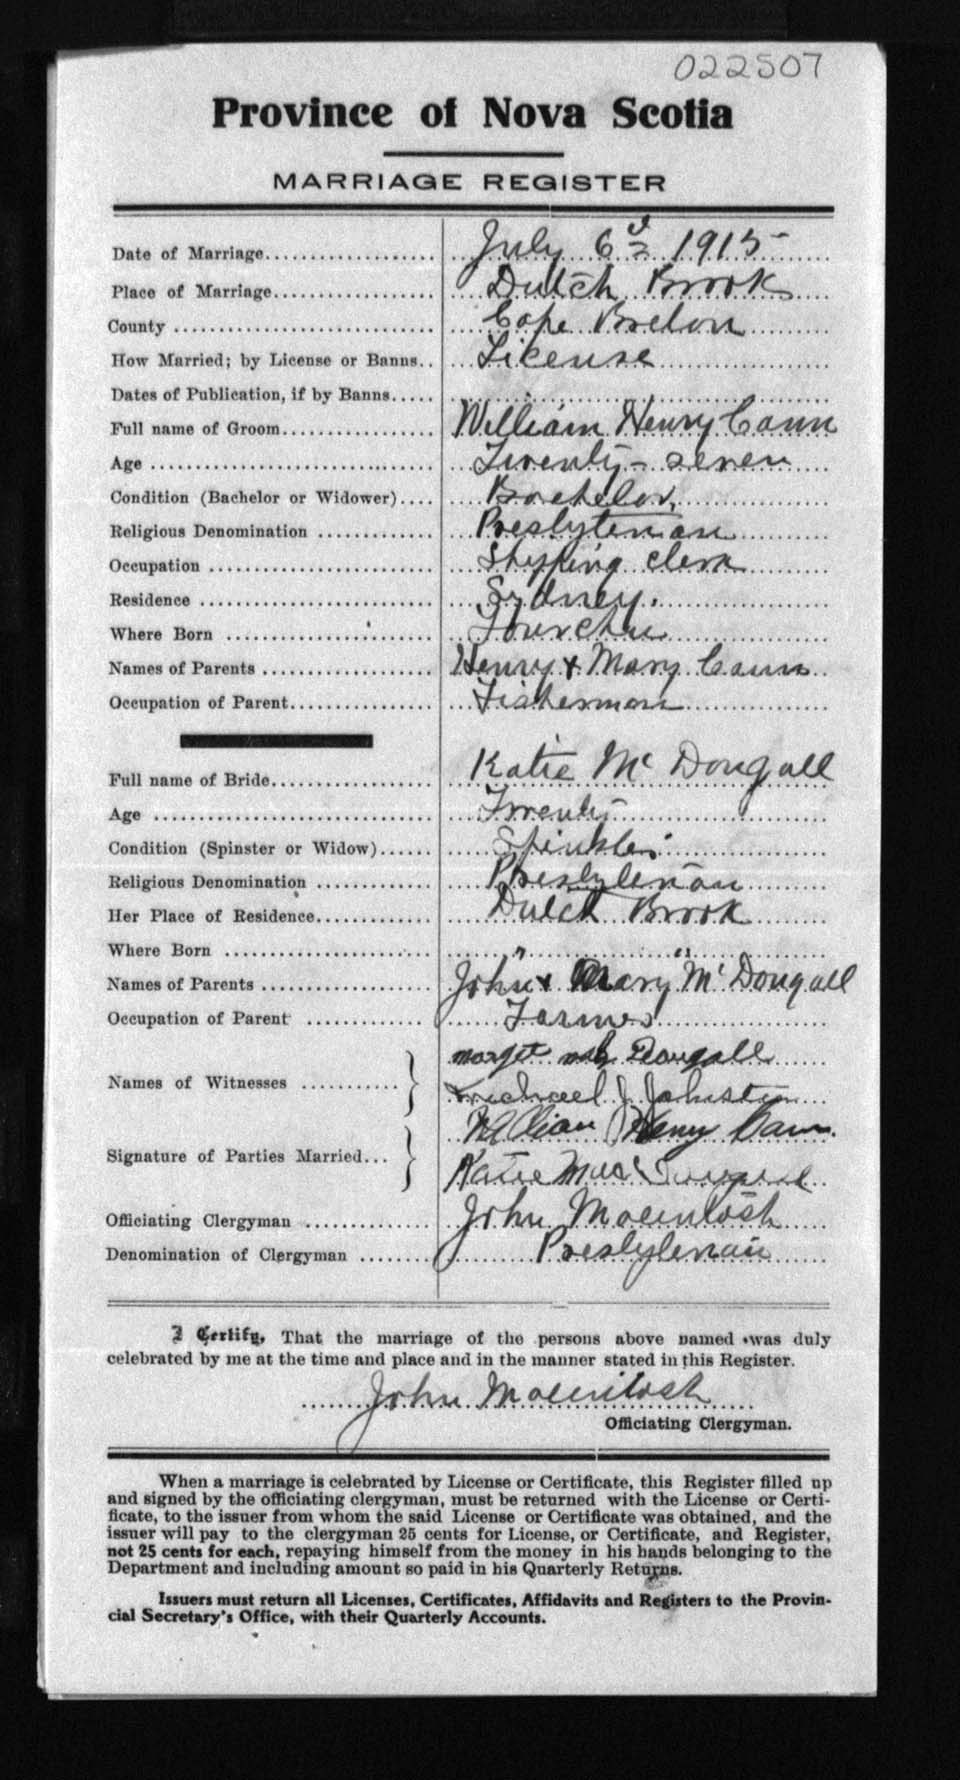 022507
Province of Nova Scotia
MARRIAGE REGISTER
Date of Marriage.................... July 6th 1915
Place of Marriage.................. Dutch Brook
County ............................. Cape Breton
How Married; by License or Banns.. License
Dates of Publication, if by Banns.....
Full name of Groom................. William Henry Cann
Age ................................ Twenty-seven
Condition (Bachelor or Widower).... Bachelor,
Religious Denomination ............. Presbyterian
Occupation ......................... Shipping clerk
Residence .......................... Sydney.
Where Born ........................ Fourchu
Names of Parents ................... Henry & Mary Cann
Occupation of Parent................ Fisherman
Full name of Bride.................. Katie Mc Dougall
Age ............................... Twenty
Condition (Spinster or Widow)...... Spinster
Religious Denomination ............. Presbyterian
Her Place of Residence............. Dutch Brook
Where Born ........................ " "
Names of Parents ................... John & Mary Mc Dougall
Occupation of Parent ............. Farmer
Names of Witnesses ........... } Dougall
Michael J Johnston
Signature of Parties Married... } William Henry Cann.
Katie
Officiating Clergyman .............. John Macintosh
Denomination of Clergyman ........ Presbyterian
I Certify, That the marriage of the persons above named was duly
celebrated by me at the time and place and in the manner stated in this Register.
John Macintosh
Officiating Clergyman.
When a marriage is celebrated by License or Certificate, this Register filled up
and signed by the officiating clergyman, must be returned with the License or Certi-
ficate, to the issuer from whom the said License or Certificate was obtained, and the
issuer will pay to the clergyman 25 cents for License, or Certificate, and Register,
not 25 cents for each, repaying himself from the money in his hands belonging to the
Department and including amount so paid in his Quarterly Returns.
Issuers must return all Licenses, Certificates, Affidavits and Registers to the Provin-
cial Secretary's Office, with their Quarterly Accounts.